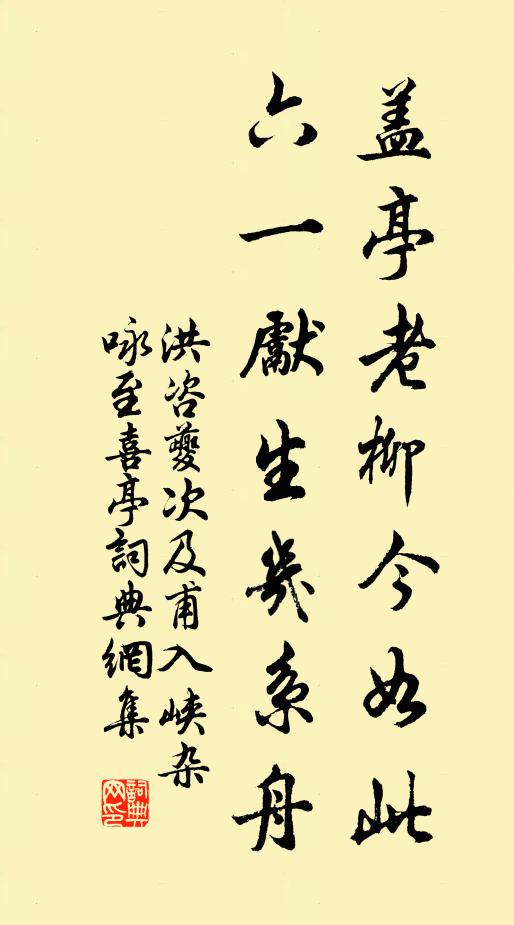 盖亭老柳今如此
六一献生几系舟
洪咨夔次及甫入峡杂
咏至喜亭詞典網集
詞典
网印